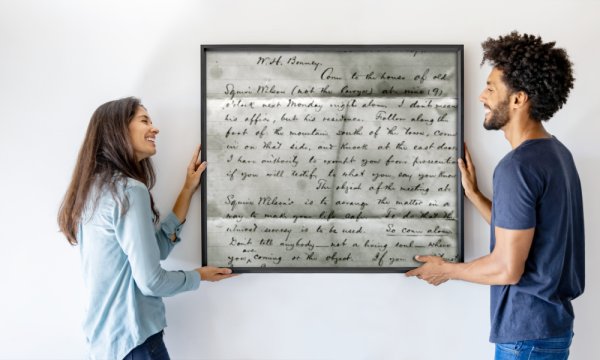 W. H. Bonney.
Come to the house of old
Squire Wilson (not the lawyer) at nine (9)
o'clock next Monday night alone. I don't mean
his office, but his residence. Follow along the
foot of the mountain south of the town, come
in on that side, and knock at the east door
I have authority to exempt you from prosecution
if you will testify to what you, say you know
The object of the meeting at
Squire Wilson's is to arrange the matter in a
way to make your life safe. To do that the
utmost secresy is to be used. So come alone
Don't tell anybody—not a living soul—where
you are coming or the object. If you